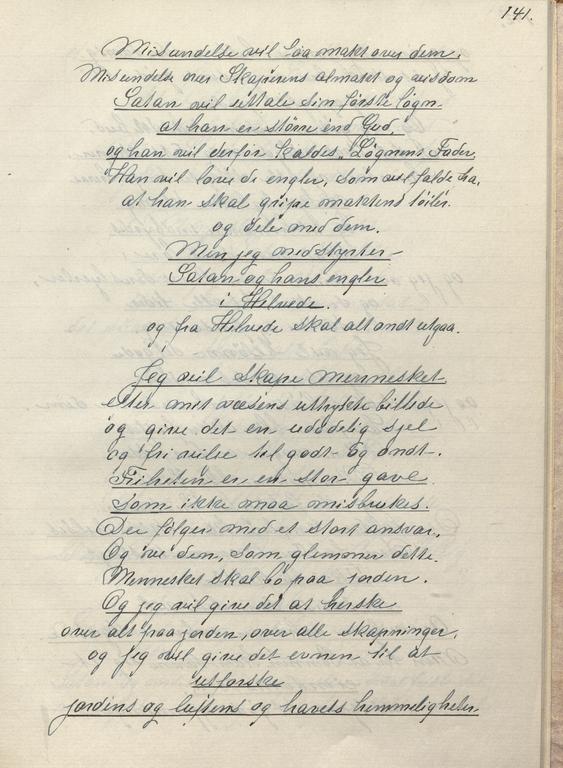 141.
Misundelse vil faa makt over dem.
Misundelse over Skaperens almakt og visdom
Satan vil uttale sin første løgn
at han er større end Gud.
og han vil derfor kaldes „Løgnens Fader.
Han vil love de engler, som vil falde fra,
at han skal gripe maktens tøiler.
og dele med dem.
Men jeg nedstyrter
Satan og hans engler
i Helvede.
og fra Helvede skal alt ondt utgaa.
Jeg vil skape mennesket
efter mit væsens uttrykte billede
og give det en udødelig sjel
og fri vilje til godt og ondt.
Friheten er en stor gave
som ikke maa misbrukes.
Der følger med et stort ansvar.
Og ve dem, som glemmer dette.
Mennesket skal bo paa jorden.
Og jeg vil give det at herske
over alt paa jorden, over alle skapninger,
og jeg vil give det evnen til at
utforske
jordens og luftens og havets hemmeligheter